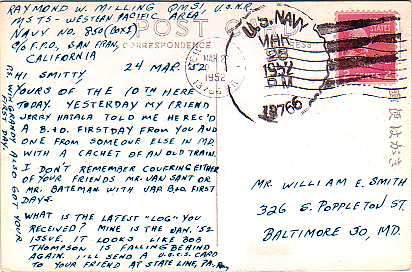 RAYMOND W. MILLING QMS1, U.S.N.R.
MSTS - WESTERN PACIFIC AREA
NAVY NO. 350 (BOX 5)
C/O F.P.O., SAN FRAN,
CALIFORNIA
POST CARD
CORRESPONDENCE
24 MAR. '52
HI SMITTY,
YOURS OF THE 10TH HERE
TODAY. YESTERDAY MY FRIEND
JERRY HATALA TOLD ME HE REC'D
A B.&O. FIRST DAY FROM YOU AND
ONE FROM SOMEONE ELSE IN MD.
WITH A CACHET OF AN OLD TRAIN.
I DON'T REMEMBER COVERING EITHER
OF YOUR FRIENDS MR. VAN SANT OR
MR. BATEMAN WITH UAP B&O FIRST
DAYS.
WHAT IS THE LATEST "LOG" YOU
RECEIVED? MINE IS THE JAN. '52
ISSUE. IT LOOKS LIKE BOB
THOMPSON IS FALLING BEHIND
AGAIN. I'LL SEND A U.S.C.S. CARD
TO YOUR FRIEND AT STATE LINE, PA.
Ray
P.S. WIN GRANDY ALSO GOT YOUR
FIRST DAY.
1952
U.S. NAVY
MAR
1952
P.M.
18766
MR. WILLIAM E. SMITH
326 E. POPPLETON ST.
BALTIMORE 30, MD.
便はがき